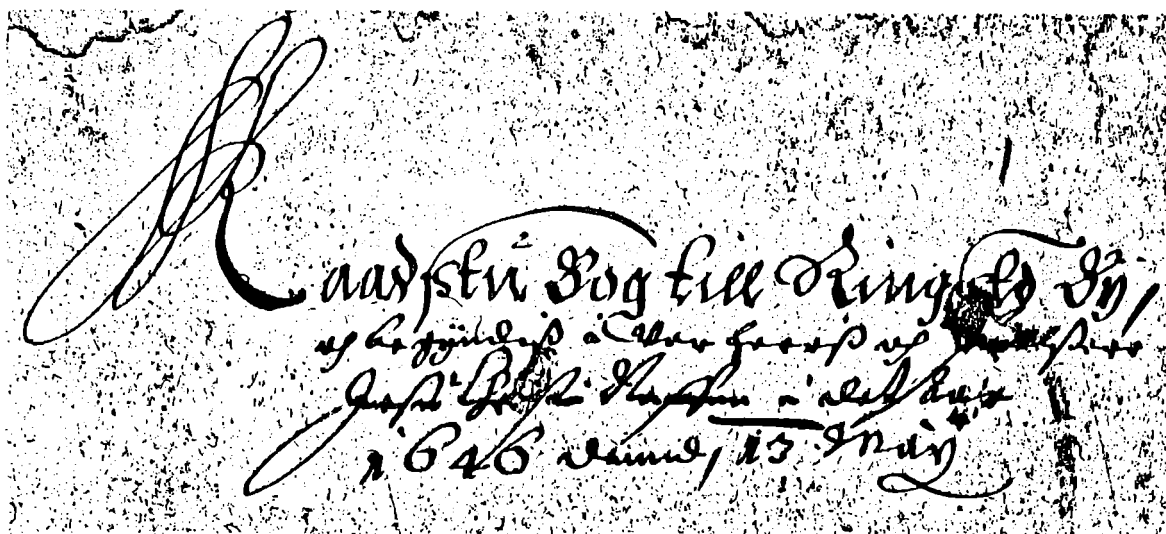 Raadstu Bog till Ringsted By,
och begyndis i Vor Herris och Frelsers
Jesu Christi Naffn i det Aar
1646 dennd, 13 Maÿ